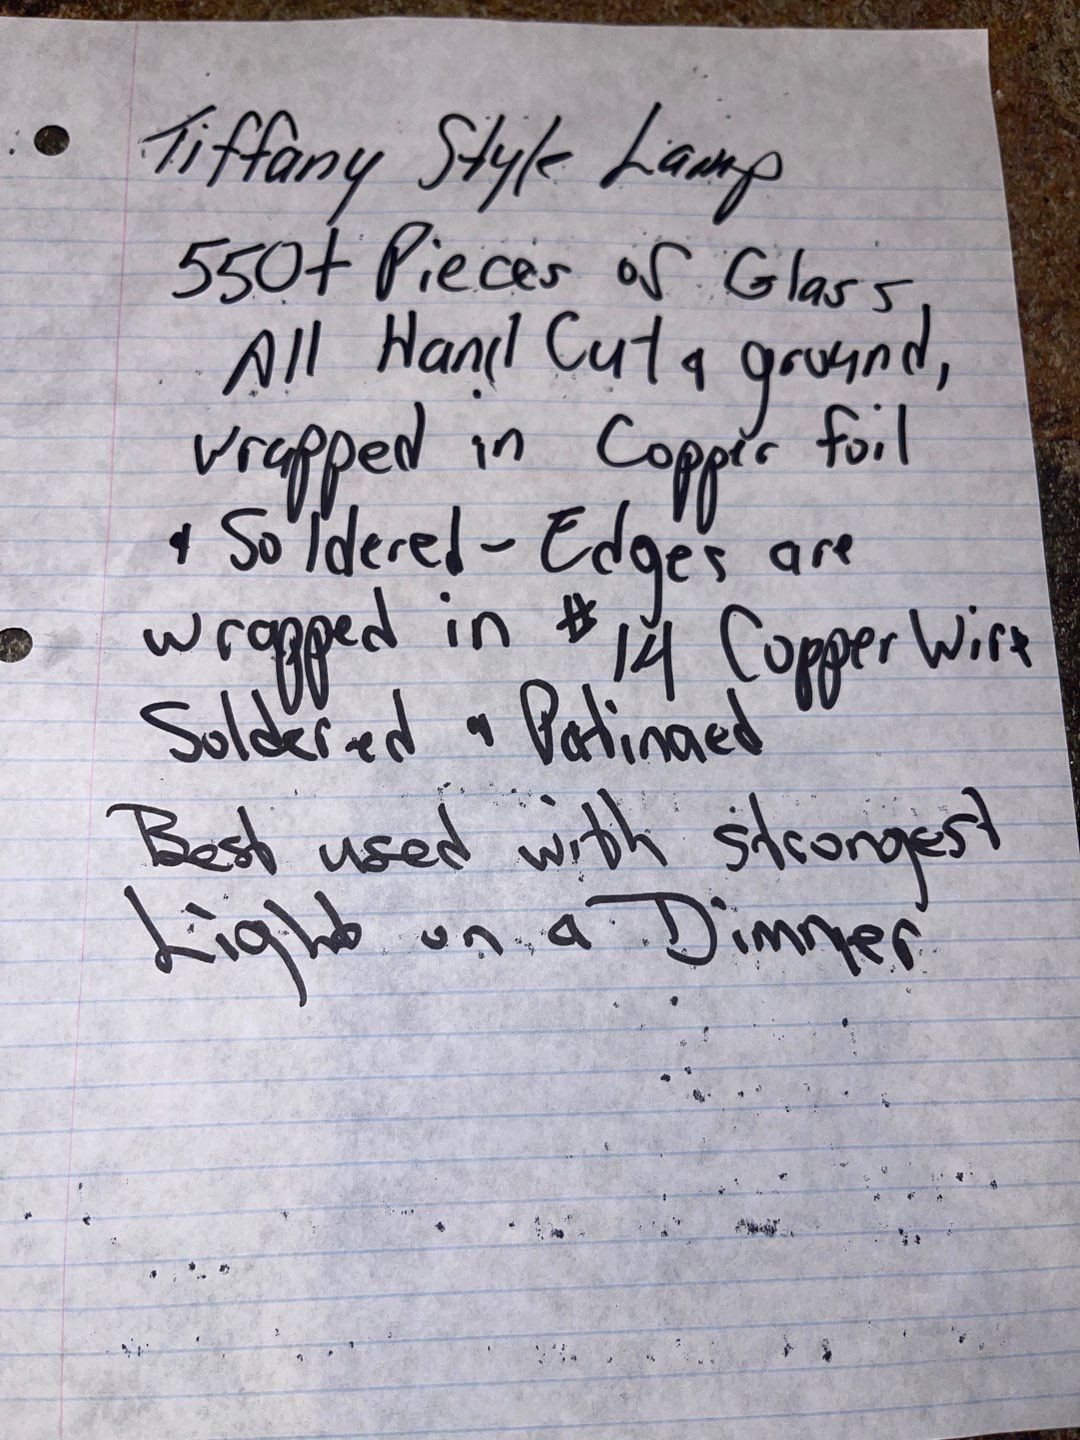 Tiffany Style Lamp
550+ Pieces of Glass,
All Hand Cut & ground,
wrapped in Copper foil
& Soldered - Edges are
wrapped in #14 Copper Wire
Soldered & Patinaed
Best used with strongest
Light on a Dimmer